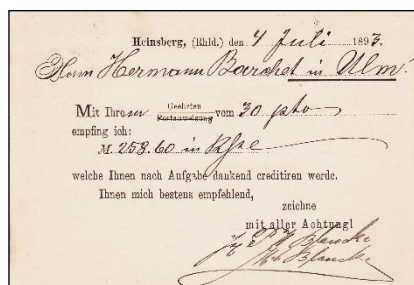 Heinsberg, (Rhld.) den 4 Juli 1893.
Herrn Hermann Barchet in Ulm
Mit Ihrem Geehrten Postanweisung vom 30 pto
empfing ich:
M. 258.60 in
welche Ihnen nach Aufgabe dankend creditiren werde.
Ihnen mich bestens empfehlend,
zeichne
mit aller Achtung!